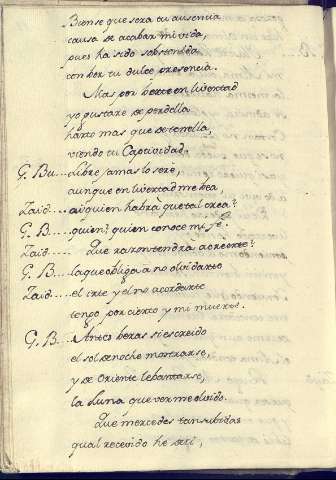 Bien se que sera tu ausencia
causa de acabar mi vida,
pues ha sido sobstenida
con ber tu dulce presencia.
Mas por berte en livertad
yo gustare de perdella
harto mas que de tenella,
viendo tu Captividad.
G. Bu... Libre jamas lo sere,
aunque en livertad me bea,
Zaid.... a quien habra que tal crea?
G. B... quien? quien conoce mi fe.
Zaid.... Que razon tendra a creerte?
G. B... la que obliga a no olvidarte
Zaid... el irte y el no acordarte
tengo por cierto y mi muerte.
G. B... Antes beras si es creido
el sol de noche mostrarse,
y de Oriente lebantarse,
la Luna que ver me olvido.
Que mercedes tan subidas
qual recevido he de ti,